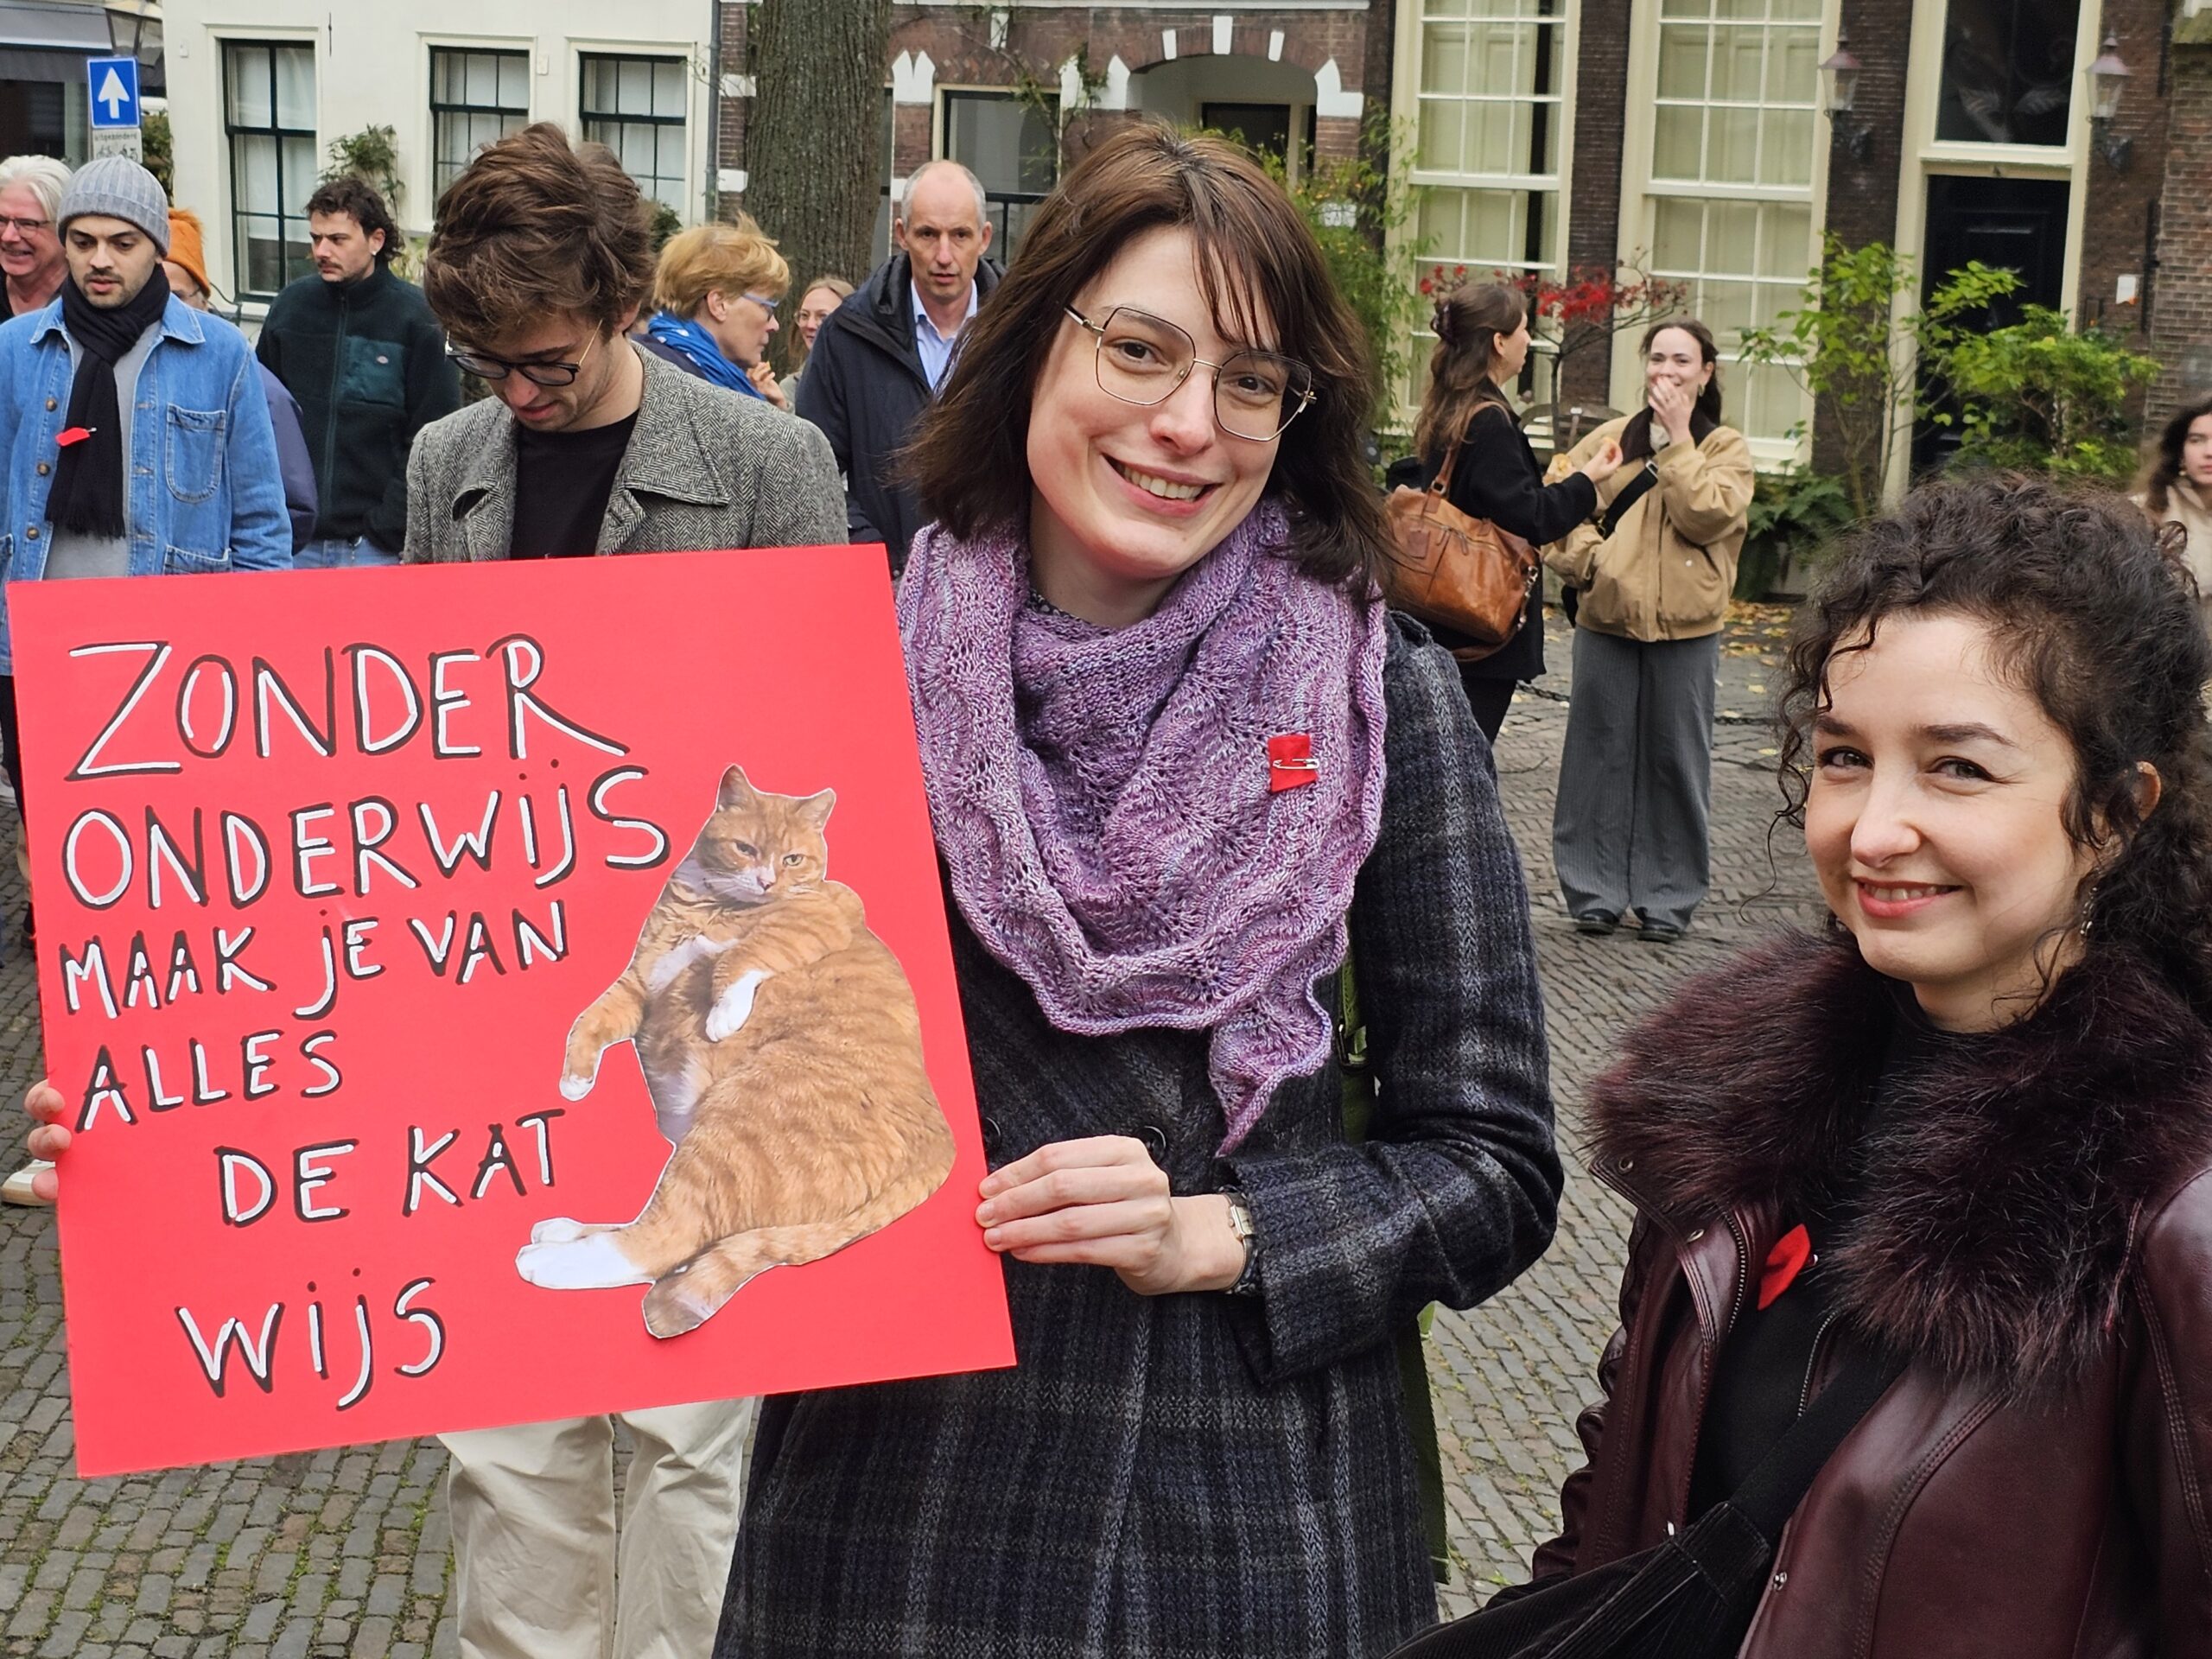 ZONDER
ONDERWIJS
MAAK JE VAN
ALLES
DE KAT
WIJS